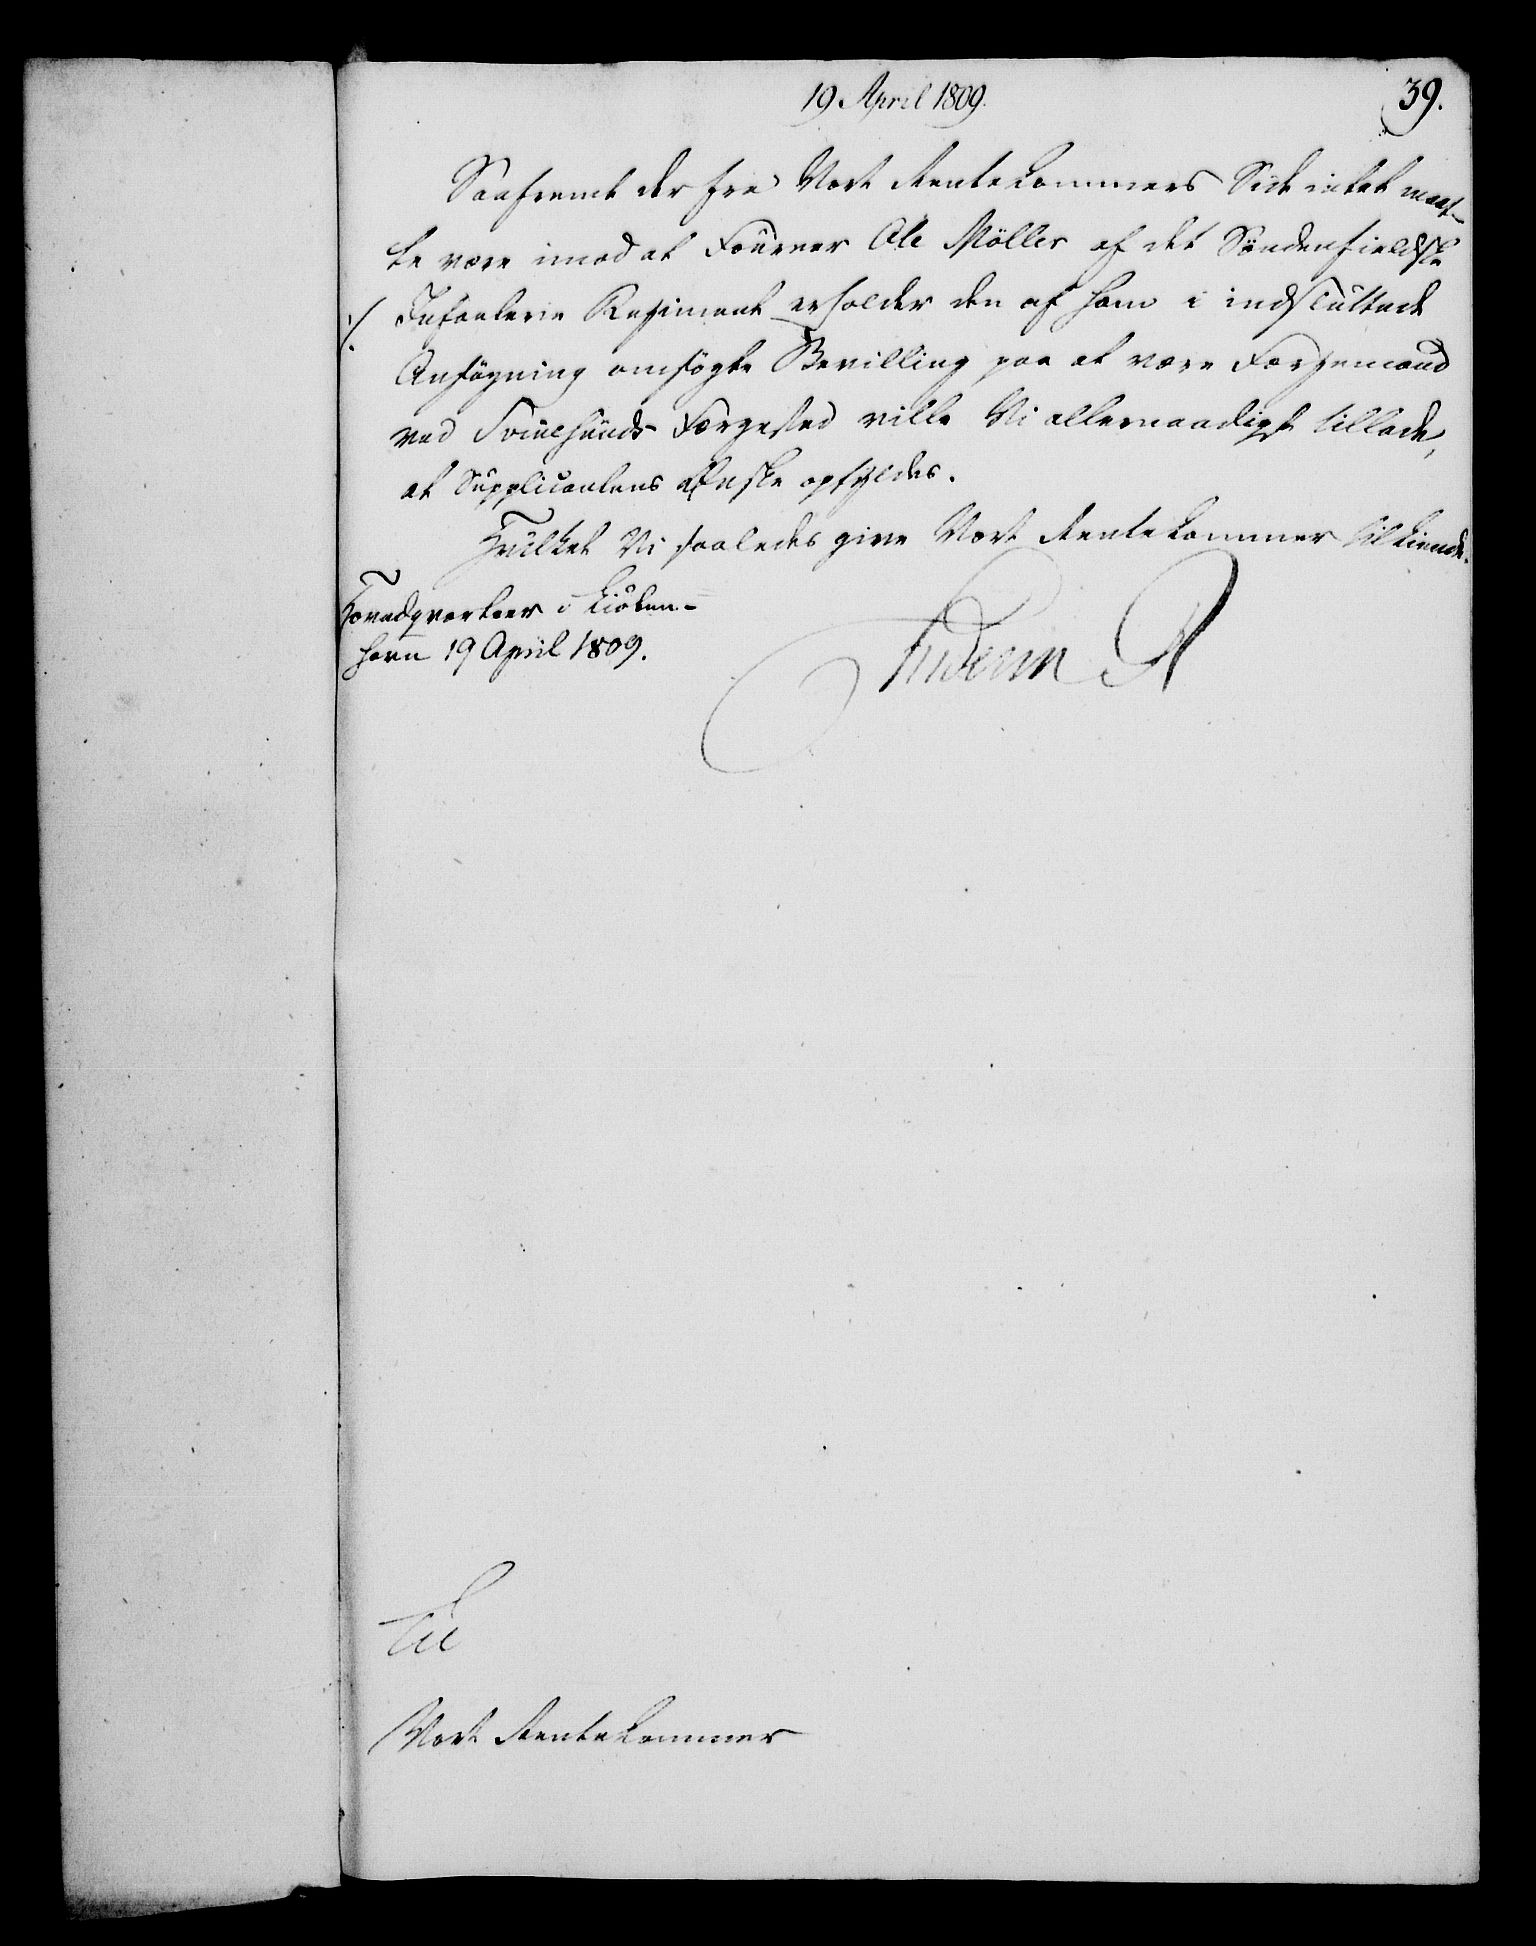 19 April 1809.
39.
Saafremt der fra Vort Rentekammers Side intet maat-
te være imod at Foureer Ole Möller af det Söndenfieldske
./. Infanterie Regiment erholder den af ham i indsluttede
Ansögning omsögte Bevilling paa at være Færgemand
ved Svinesunds Færgested ville Vi allernaadigst tillade,
at Supplicantens Ønske opfyldes.
Hvilket Vi saaledes give Vort Rentekammer tilkiende.
Hovedqvarteer i Kiöben-
havn 19 April 1809.
Frederik R
Til
Vort Rentekammer